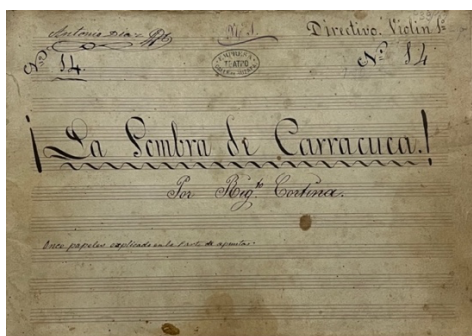 Antonio Diaz
Directivo. Violin 1º
Nº 14
TEATRO
Nº 14
¡La Sombra de Carracuca.!
Por Rigto. Cortina.
Once papeles esplicado en la Parte de apuntar.